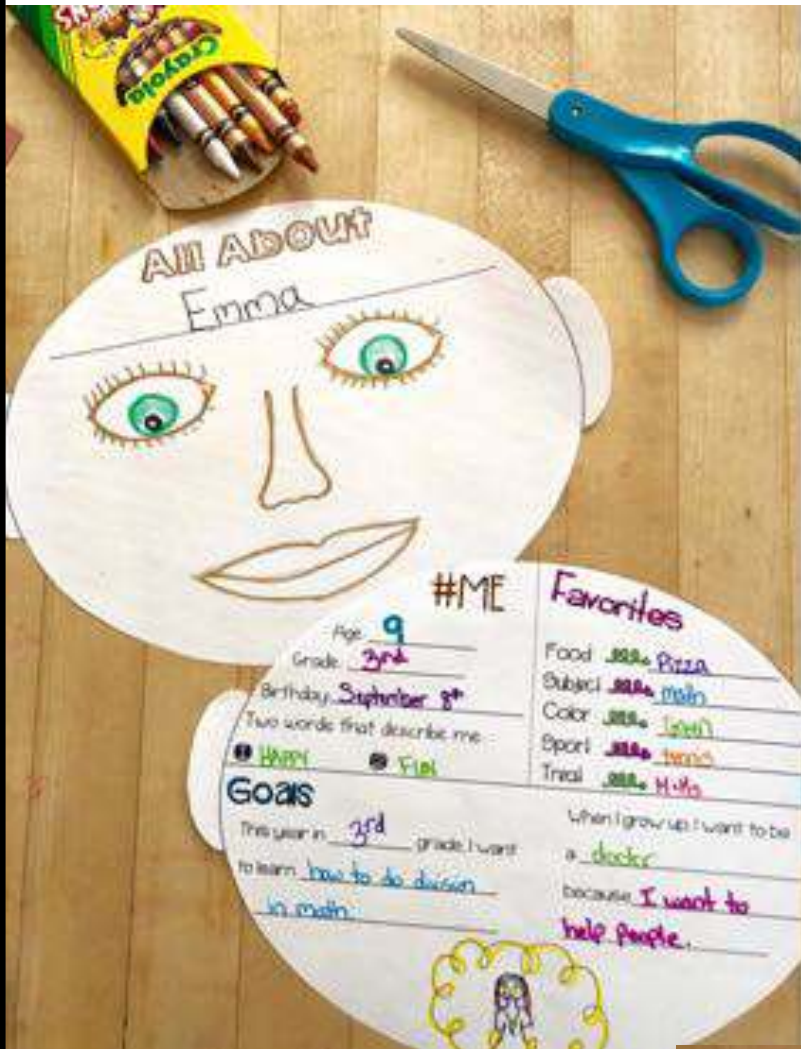 Crayola
All About
Emma
#ME
Age 9
Grade 3rd
Birthday September 8th
Two words that describe me
1 HAPPY 2 FUN
Favorites
Food Pizza
Subject math
Color green
Sport tennis
Treat M+Ms
Goals
This year in 3rd grade, I want
to learn how to do division
in math
When I grow up, I want to be
a doctor
because I want to
help people.